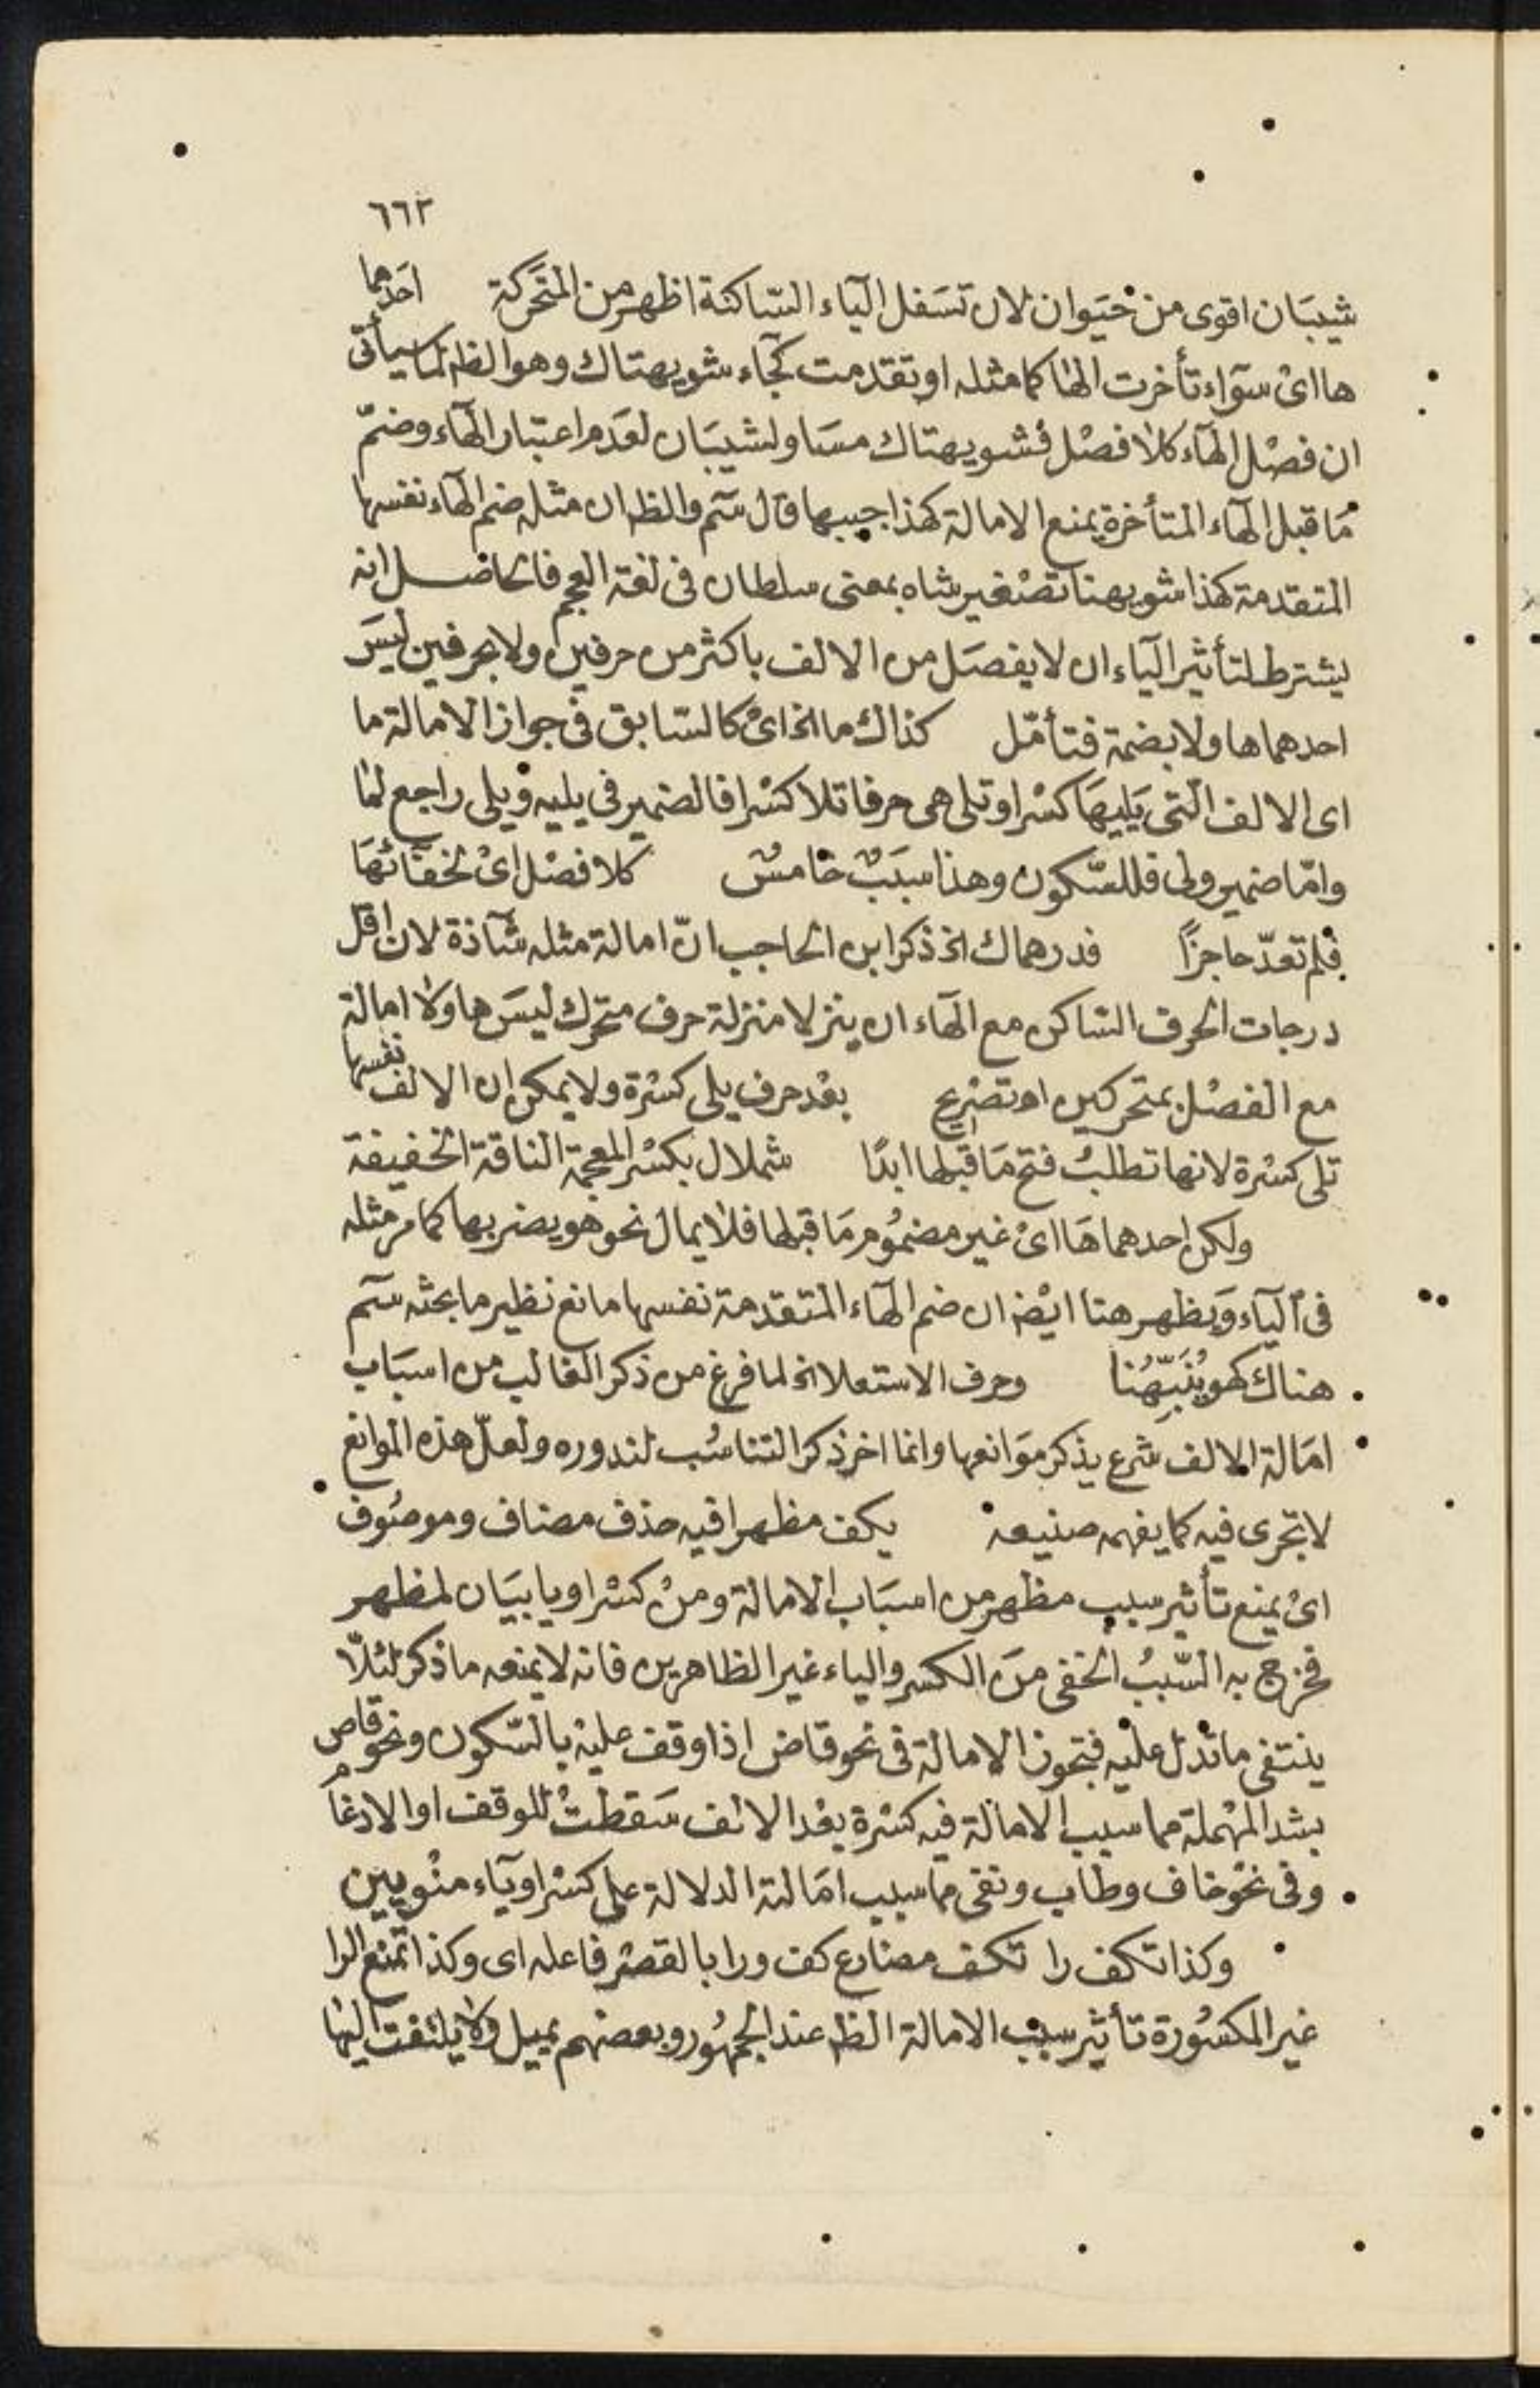 ٦٦٢
شيبان اقوى من حيوان لان تسفل الياء الساكنة اظهر من المتحركة احدهما
ها اى سواء تأخرت الها كما مثله او تقدمت كجاء شويهتاك وهو الظ لما سيأتى
ان فصل الهاء كلا فصل فشويهتاك مساو لشيبان لعدم اعتبار الهاء وضمّ
ما قبل الهاء المتأخرة يمنع الامالة كهذا جيبها قال سم والظ ان مثله ضم الهاء نفسها
المتقدمة كهذا شويهنا تصغير شاه بمعنى سلطان فى لغة العجم فالحاصل انه
يشترط لتأثير الياء ان لا يفصل من الالف باكثر من حرفين ولا بحرفين ليس
احدهما ها ولا بضمة فتأمّل كذاك ما الخ اى كالسابق فى جواز الامالة ما
اى الالف التى يليها كسر او تلى هى حرفا تلا كسرا فالضمير فى يليه ويلى راجع لما
وامّا ضمير ولى فللسّكون وهذا سبب خامس كلا فصل اى لخفائها
فلم تعدّ حاجزاً فدرهماك الخ ذكر ابن الحاجب انّ امالة مثله شاذة لان اقل
درجات الحرف الساكن مع الهاء ان ينزلا منزلة حرف متحرك ليس ها ولا امالة
مع الفصل بمتحركين اه تصريح بعد حرف يلى كسرة ولا يمكن ان الالف نفسها
تلى كسرة لانها تطلب فتح ما قبلها ابدًا شملال بكسر المعجمة الناقة الخفيفة
ولكن احدهما ها اى غير مضموم ما قبلها فلا يمال نحو هو يضربها كما مر مثله
فى الياء ويظهر هنا ايضا ان ضم الهاء المتقدمة نفسها مانع نظير ما بحثه سم
هناك كهو يُنَبِّهُنا وحرف الاستعلا الخ لما فرغ من ذكر الغالب من اسباب
امالة الالف شرع يذكر موانعها وانما اخر ذكر التناسب لندوره ولعلّ هذه الموانع
لا تجرى فيه كما يفهمه صنيعه يكف مظهرا فيه حذف مضاف وموصوف
اى يمنع تأثير سبب مظهر من اسباب الامالة ومن كسر او يا بيان لمظهر
فخرج به السّبب الخفى من الكسر والياء غير الظاهرين فانه لا يمنعه ما ذكر لئلّا
ينتفى ما تدل عليه فتجوز الامالة فى نحو قاض اذا وقف عليه بالسّكون ونحو قاص
بشد المهملة مما سبب الامالة فيه كسرة بعد الالف سقطت للوقف او الادغام
وفى نحو خاف وطاب وتقى مما سبب امالته الدلالة على كسر او ياء منويين
وكذا تكف را تكف مضارع كف ورا بالقصر فاعله اى وكذا تمنع الرا
غير المكسورة تأثير سبب الامالة الظ عند الجمهور وبعضهم يميل ولا يلتفت اليها